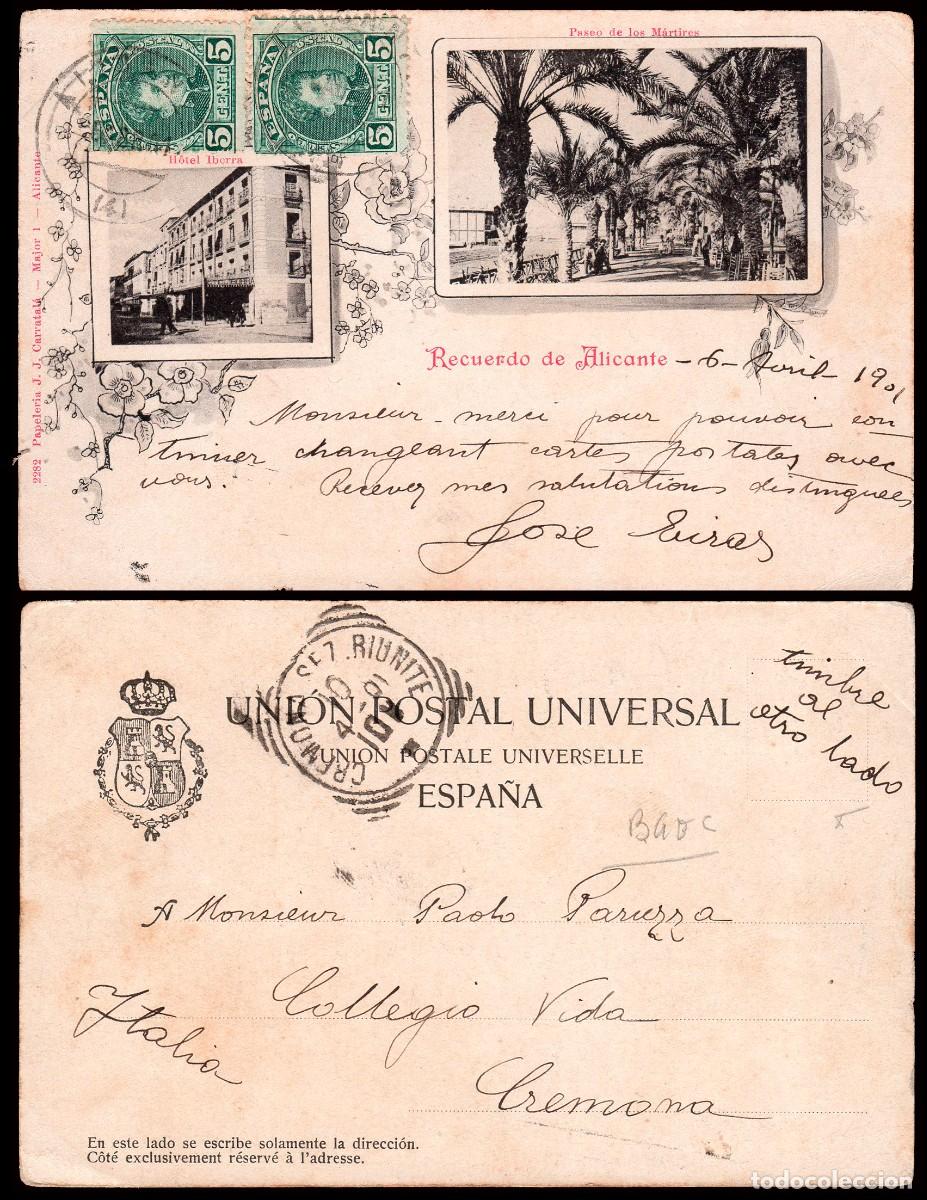 Paseo de los Mártires
ESPAÑA
5 CENT.
5
ESPAÑA
5 CENT.
5
Hôtel Iborra
(181)
2282 Papeleria J. J. Carratalá — Major 1 — Alicante
Recuerdo de Alicante - 6- Avril- 1901
Monsieur - merci pour pouvoir con
tinuer changeant cartes postales avec
vous. Recevez mes salutations distinguees
Jose Eiras
CREMONA SEZ. RIUNITE
10 4 01
UNIÓN POSTAL UNIVERSAL
UNION POSTALE UNIVERSELLE
ESPAÑA
timbre
al
otro lado
A Monsieur Paolo Paruzza
Collegio Vida
Italia
Cremona
En este lado se escribe solamente la dirección.
Côté exclusivement réservé à l'adresse.
todocoleccion